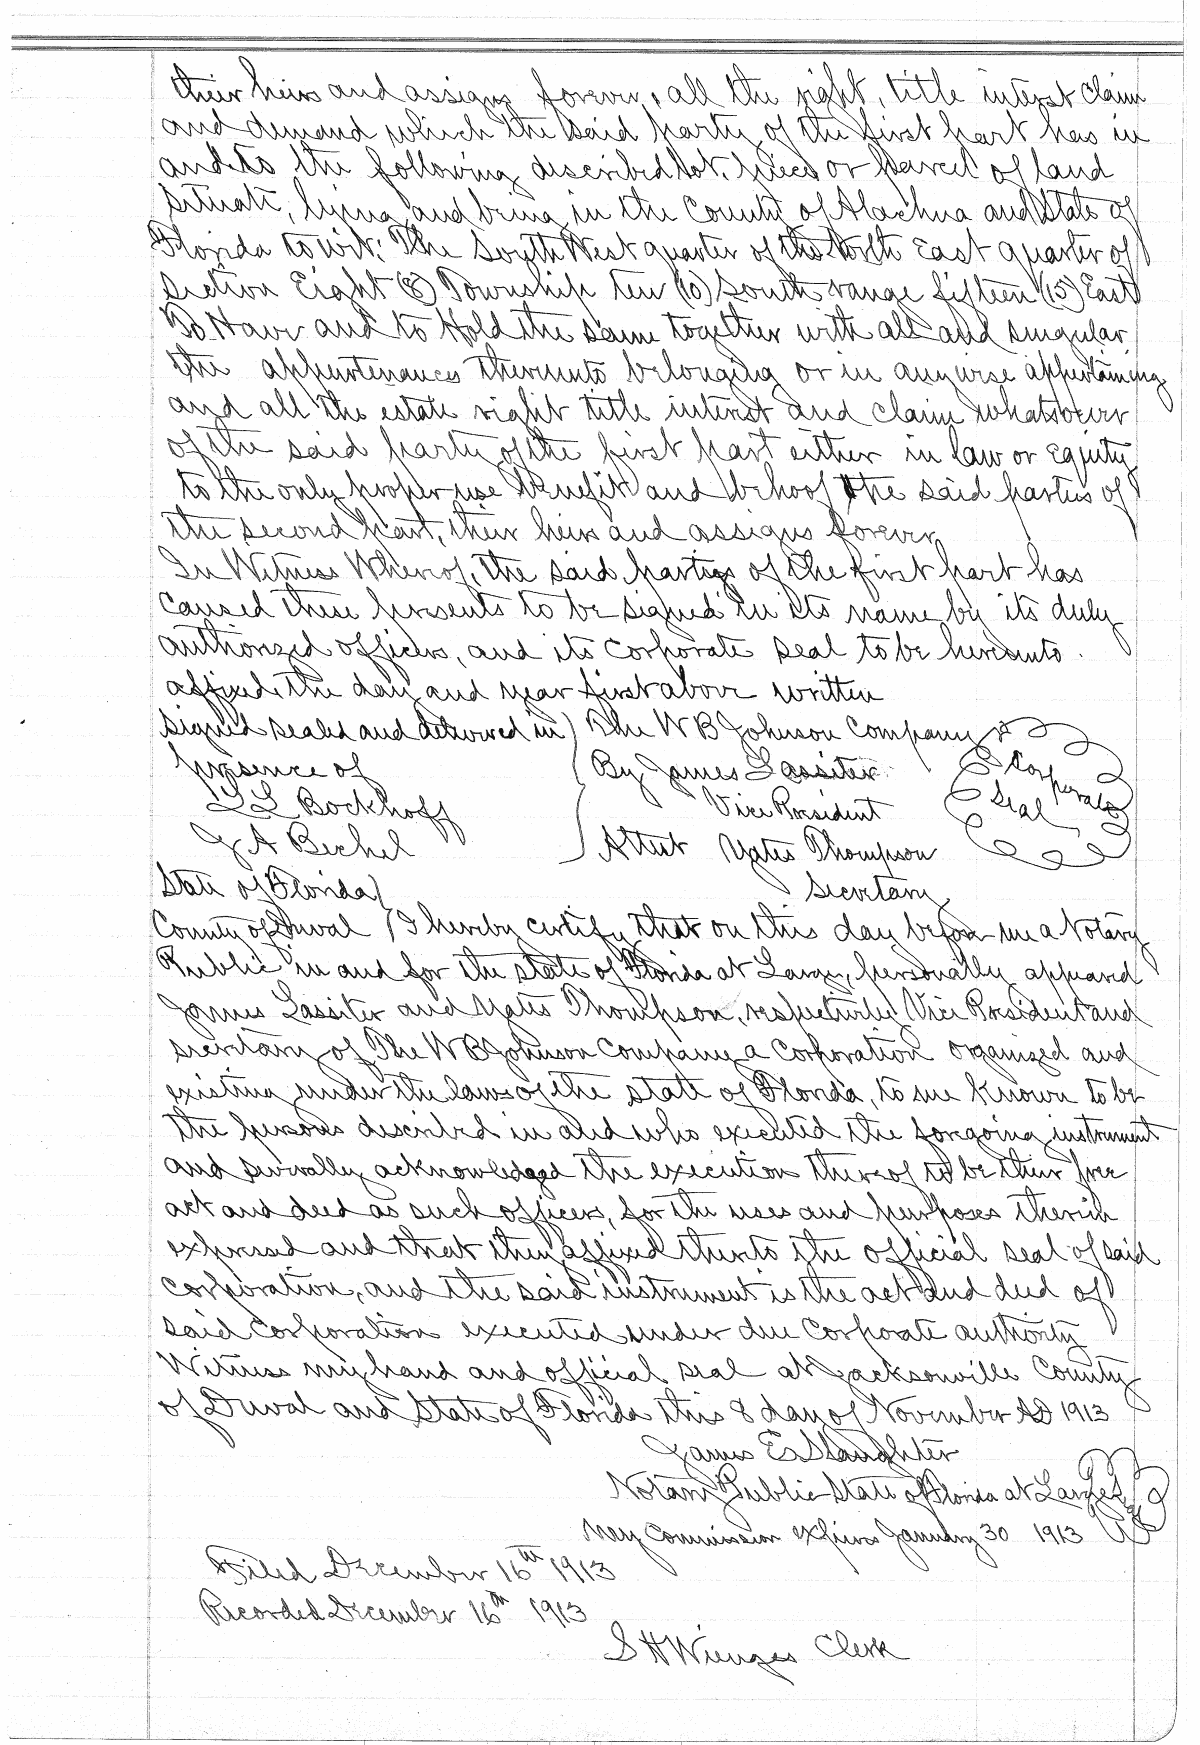 their heirs and assigns forever, all the right, title interest claim
and demand which the said party of the first part has in
and to the following described lot, piece or parcel of land
situate, lying and being in the County of Alachua and State of
Florida to wit: The South West quarter of the North East quarter of
Section Eight (8) Township ten (10) South range fifteen (15) East
To Have and to Hold the same together with all and singular
the appurtenances thereunto belonging or in anywise appertaining
and all the estate right title interest and claim whatsoever
of the said party of the first part either in law or equity
to the only proper use benefit and behoof the said parties of
the second part, their heirs and assigns forever
In Witness Whereof, the said parties of the first part has
caused these presents to be signed in its name by its duly
authorized officers, and its corporate seal to be hereunto
affixed, the day and year first above written
Signed sealed and delivered in ) The W B Johnson Company
presence of ( By James Lassiter Corporate
L L Bockhoff Vice President Seal
J A Bechel Attest Yates Thompson
State of Florida ) Secretary
County of Duval ) I hereby certify that on this day before me a Notary
Public in and for the state of Florida at Large, personally appeared
James Lassiter and Yates Thompson, respectively Vice President and
secretary of The W B Johnson Company a corporation organized and
existing under the laws of the state of Florida, to me known to be
the persons described in and who executed the forgoing instrument
and severally acknowledged the execution thereof to be their free
act and deed as such officers, for the uses and purposes therein
expressed and that they affixed thereto the official seal of said
corporation, and the said instrument is the act and deed of
said corporation executed under due corporate authority
Witness my hand and official seal at Jacksonville County
of Duval and State of Florida this 8 day of November AD 1913
James E Slaughter
Notary Public State of Florida at Large
My Commission expires January 30 1913
Filed December 16th 1913
Recorded December 16th 1913
S H Wienges Clerk